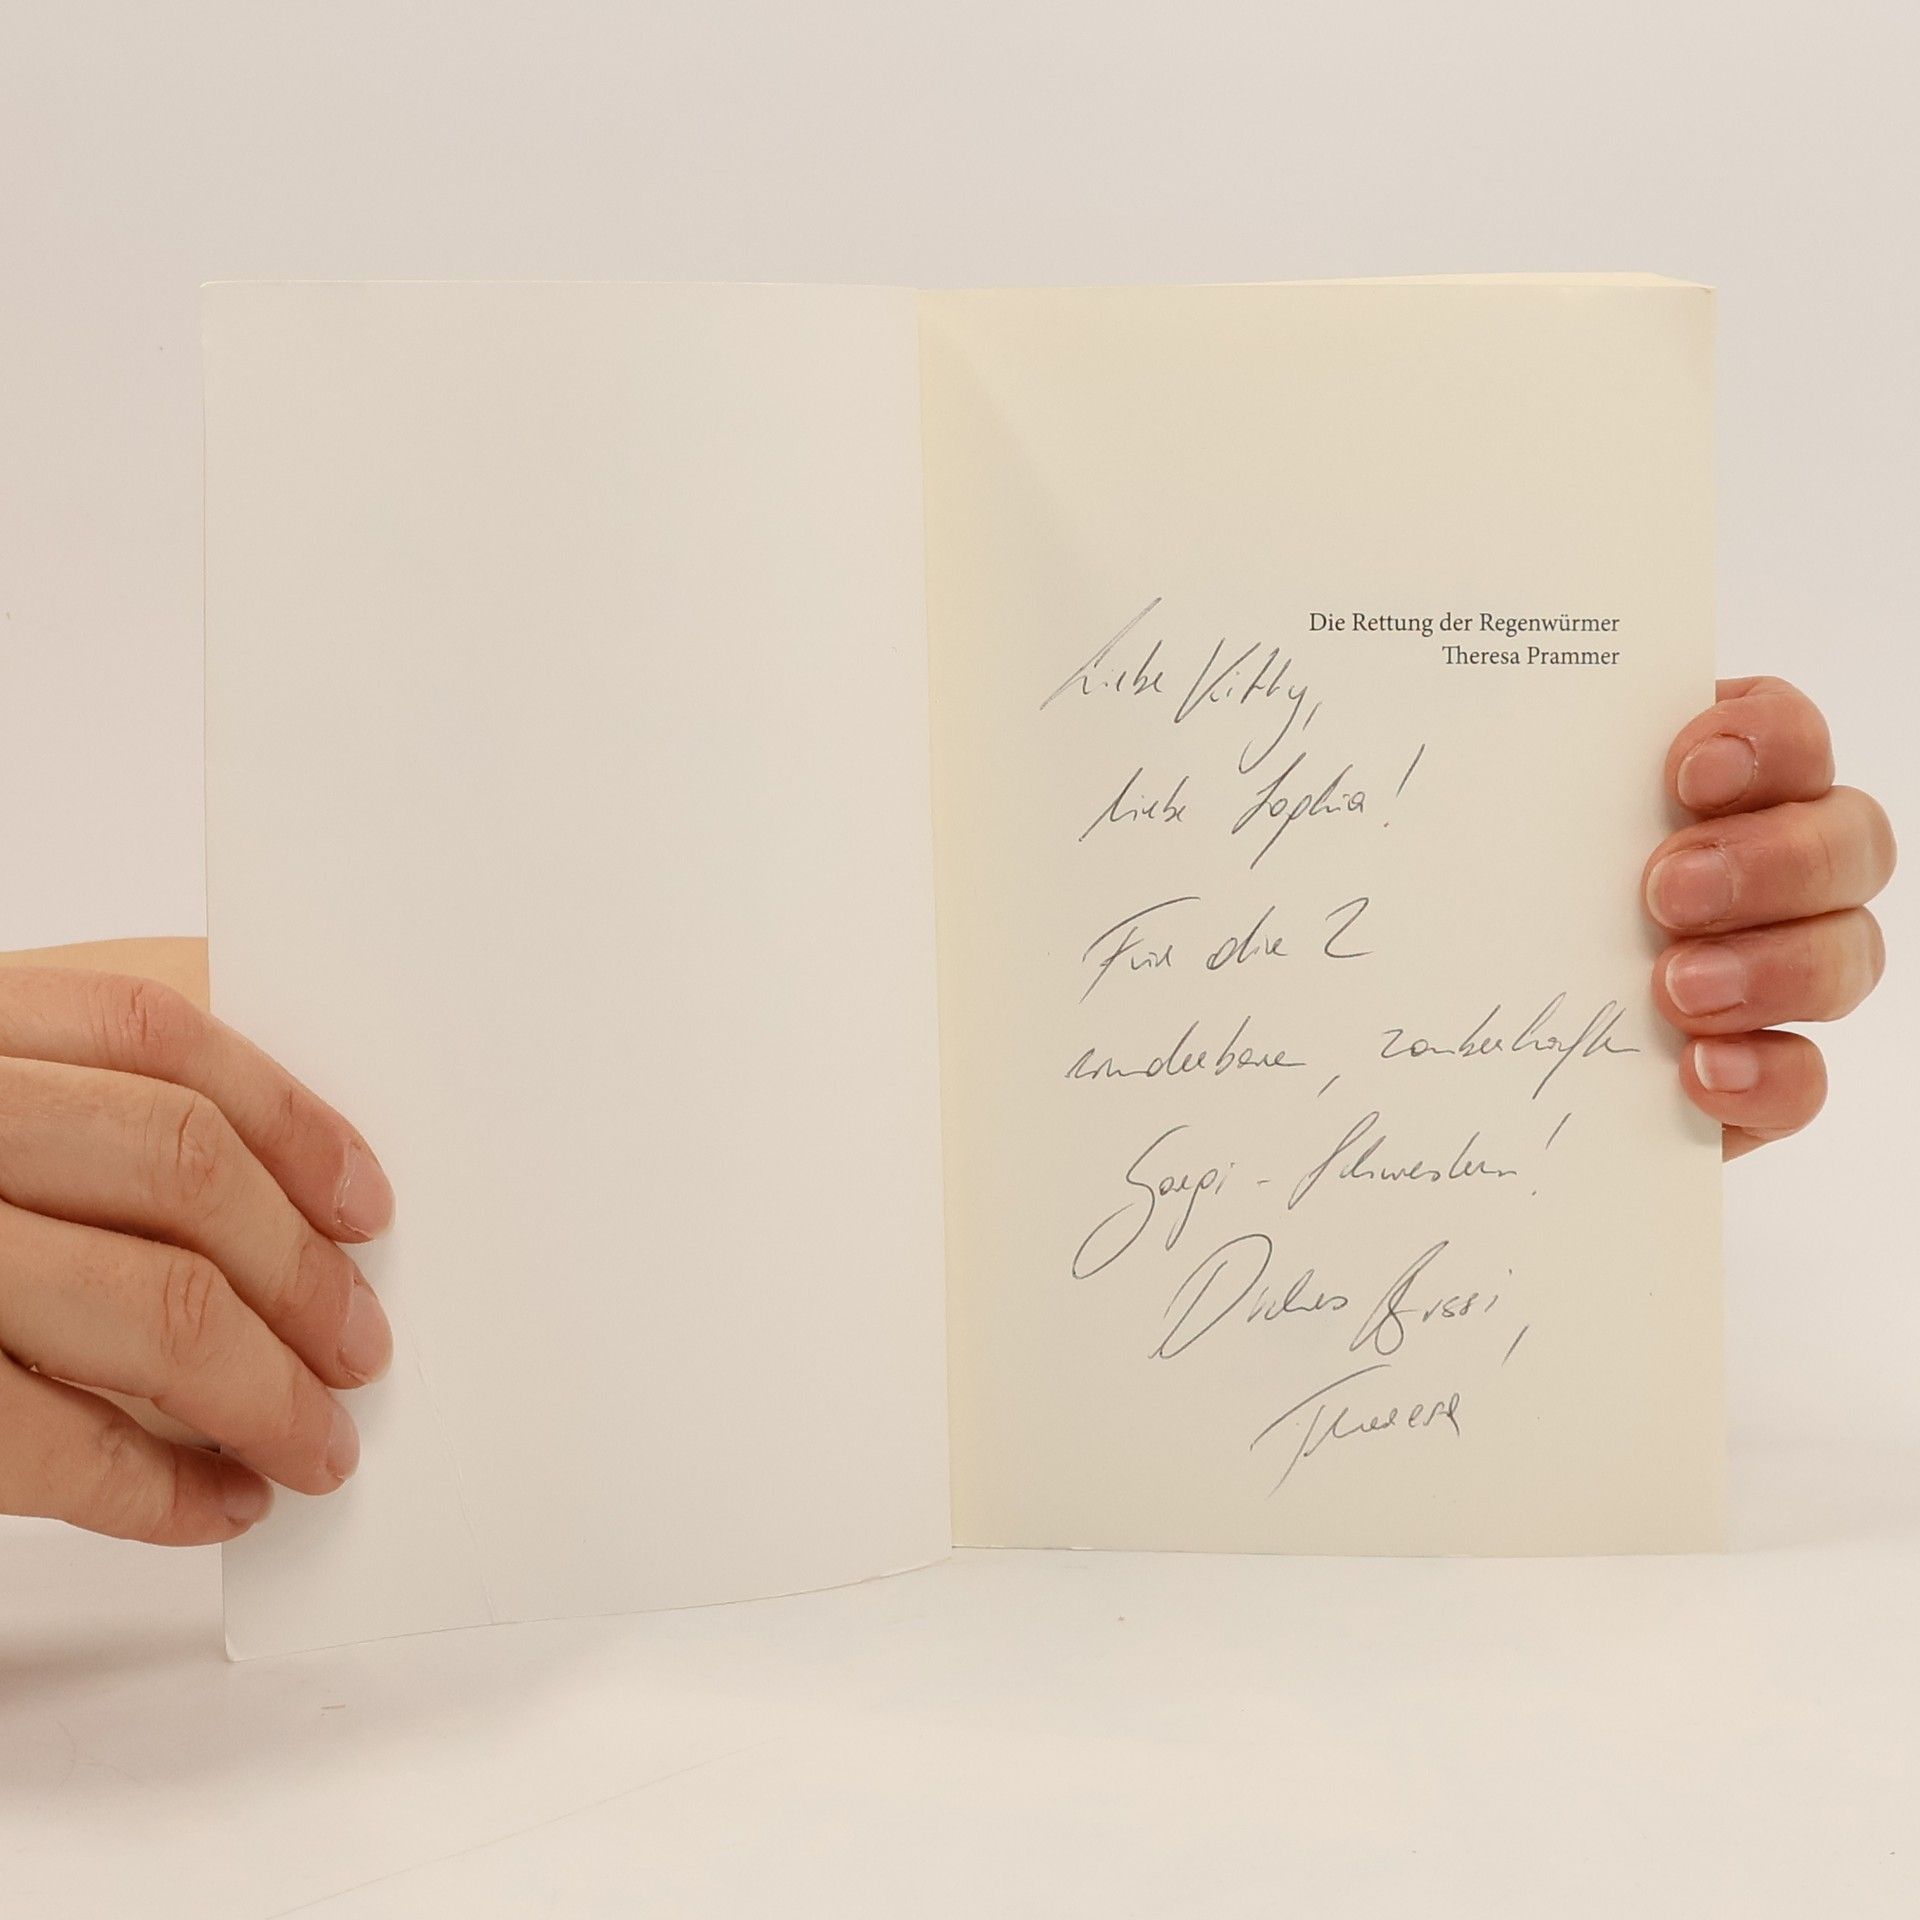 Die Rettung der Regenwürmer
Theresa Prammer
Liebe Kitty,
liebe Sophia!
Für die 2
wunderbaren, zauberhaften
- Schwestern!
Dickes Bussi,
Theresa